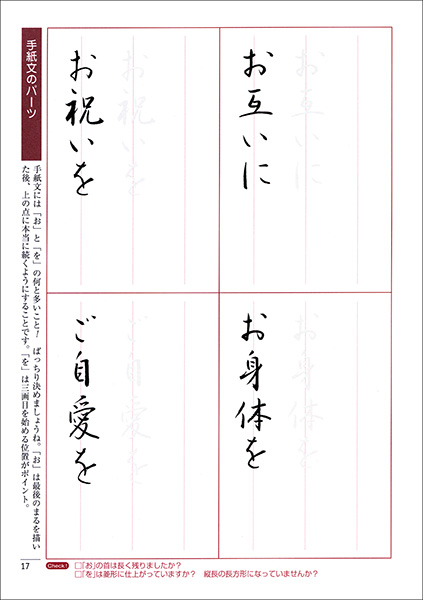 お互いに
お互いに
お祝いを
お祝いを
お身体を
お身体を
ご自愛を
ご自愛を
手紙文のパーツ
手紙文には「お」と「を」の何と多いこと! ばっちり決めましょうね。「お」は最後のまるを描い
た後、上の点に本当に続くようにすることです。「を」は三画目を始める位置がポイント。
17
Check!
□「お」の首は長く残りましたか?
□「を」は菱形に仕上がっていますか? 縦長の長方形になっていませんか?